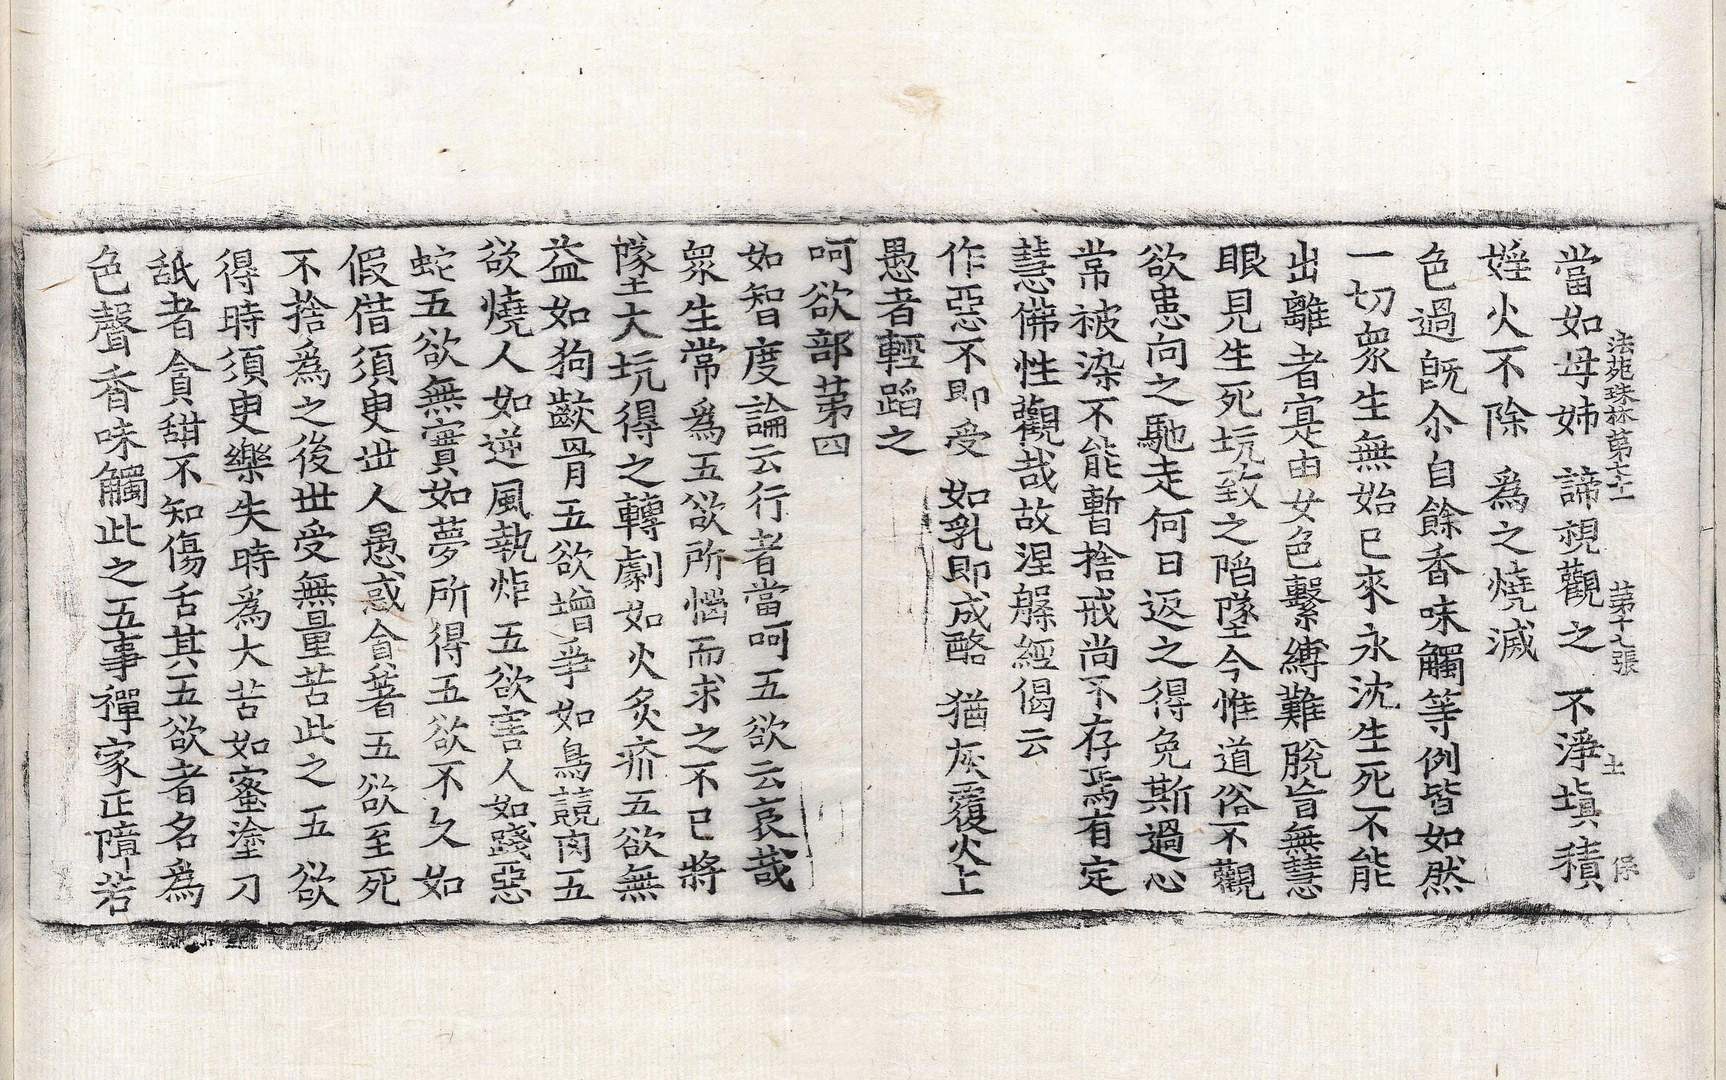 法苑珠林第七十一　第十七張　士　保
當如母姊　諦視觀之　不淨塡積
婬火不除　爲之燒滅
色過旣尒自餘香味觸等例皆如然
一切衆生無始已來永沈生死不能
出離者寔由女色繫縛難脫盲無慧
眼見生死坑致之陷墜今惟道俗不觀
欲患向之馳走何日返之得免斯過心
常被染不能暫捨戒尚不存焉有定
慧佛性觀哉故涅槃經偈云
作惡不即受　如乳即成酪　猶灰覆火上
愚者輕蹈之
呵欲部第四
如智度論云行者當呵五欲云哀哉
衆生常爲五欲所惱而求之不已將
墜大坑得之轉劇如火炙疥五欲無
益如狗齩骨五欲增爭如鳥競肉五
欲燒人如逆風執炬五欲害人如踐惡
蛇五欲無實如夢所得五欲不久如
假借須臾世人愚惑貪著五欲至死
不捨爲之後世受無量苦此之五欲
得時須臾樂失時爲大苦如蜜塗刀
舐者貪甜不知傷舌其五欲者名爲
色聲香味觸此之五事禪家正障若